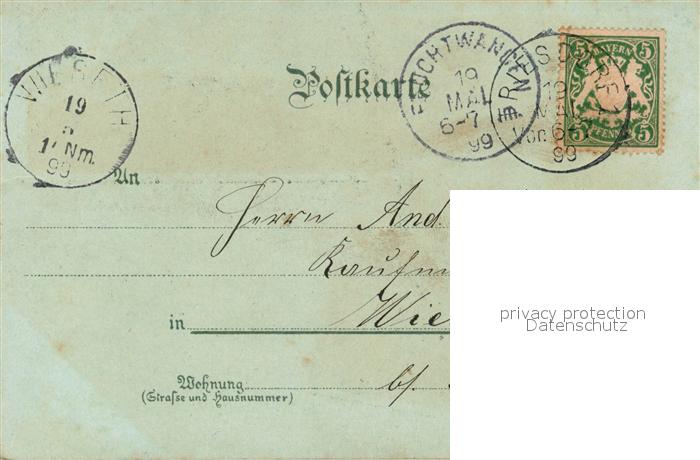 FEUCHTWANGEN
19
MAI
6-7
99
5 BAYERN 5
5 PFENNIG 5
19
MAI
Vor. 6-
99
WIESETH
19
5
1 Nm.
99
Postkarte
An
Herrn And
Kaufm
in Wie
Wohnung
(Straſse und Hausnummer)
b/.
privacy protection
Datenschutz